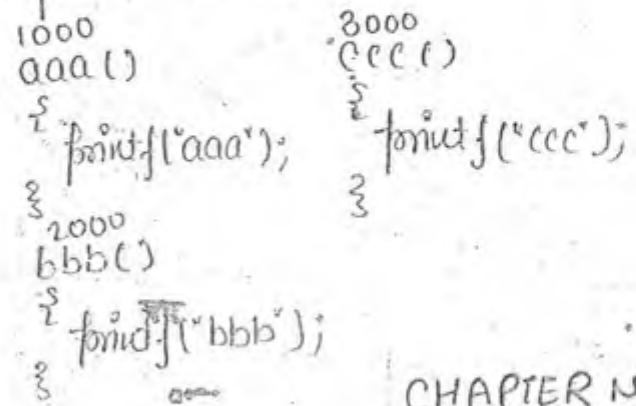 1000
aaa()
{
printf("aaa");
}
2000
bbb()
{
printf("bbb");
}
3000
ccc()
{
printf("ccc");
}
CHAPTER N